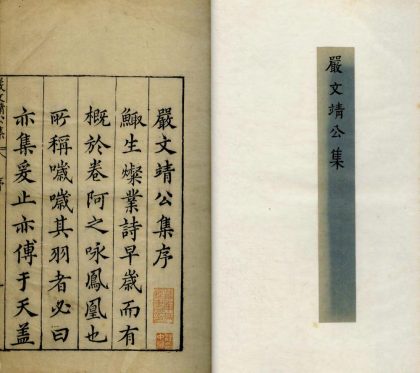 嚴文靖公集
嚴文靖公集序
鯫生燦業詩早歲而有
概於卷阿之咏鳳凰也
所稱噦噦其羽者必曰
亦集爰止亦傅于天蓋
嚴文靖公集
序